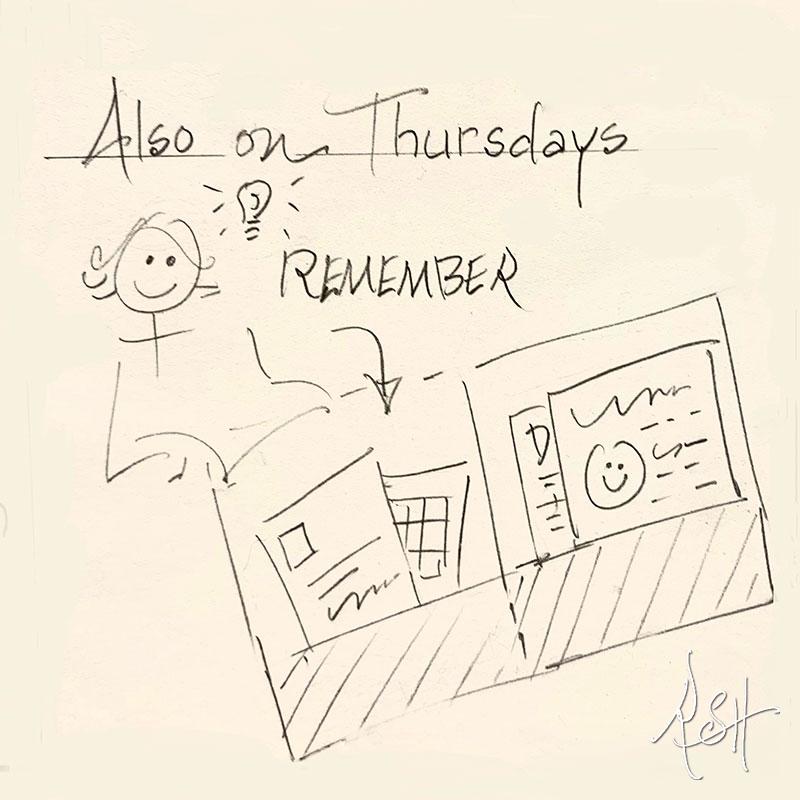 Also on Thursdays
REMEMBER
D
RSH